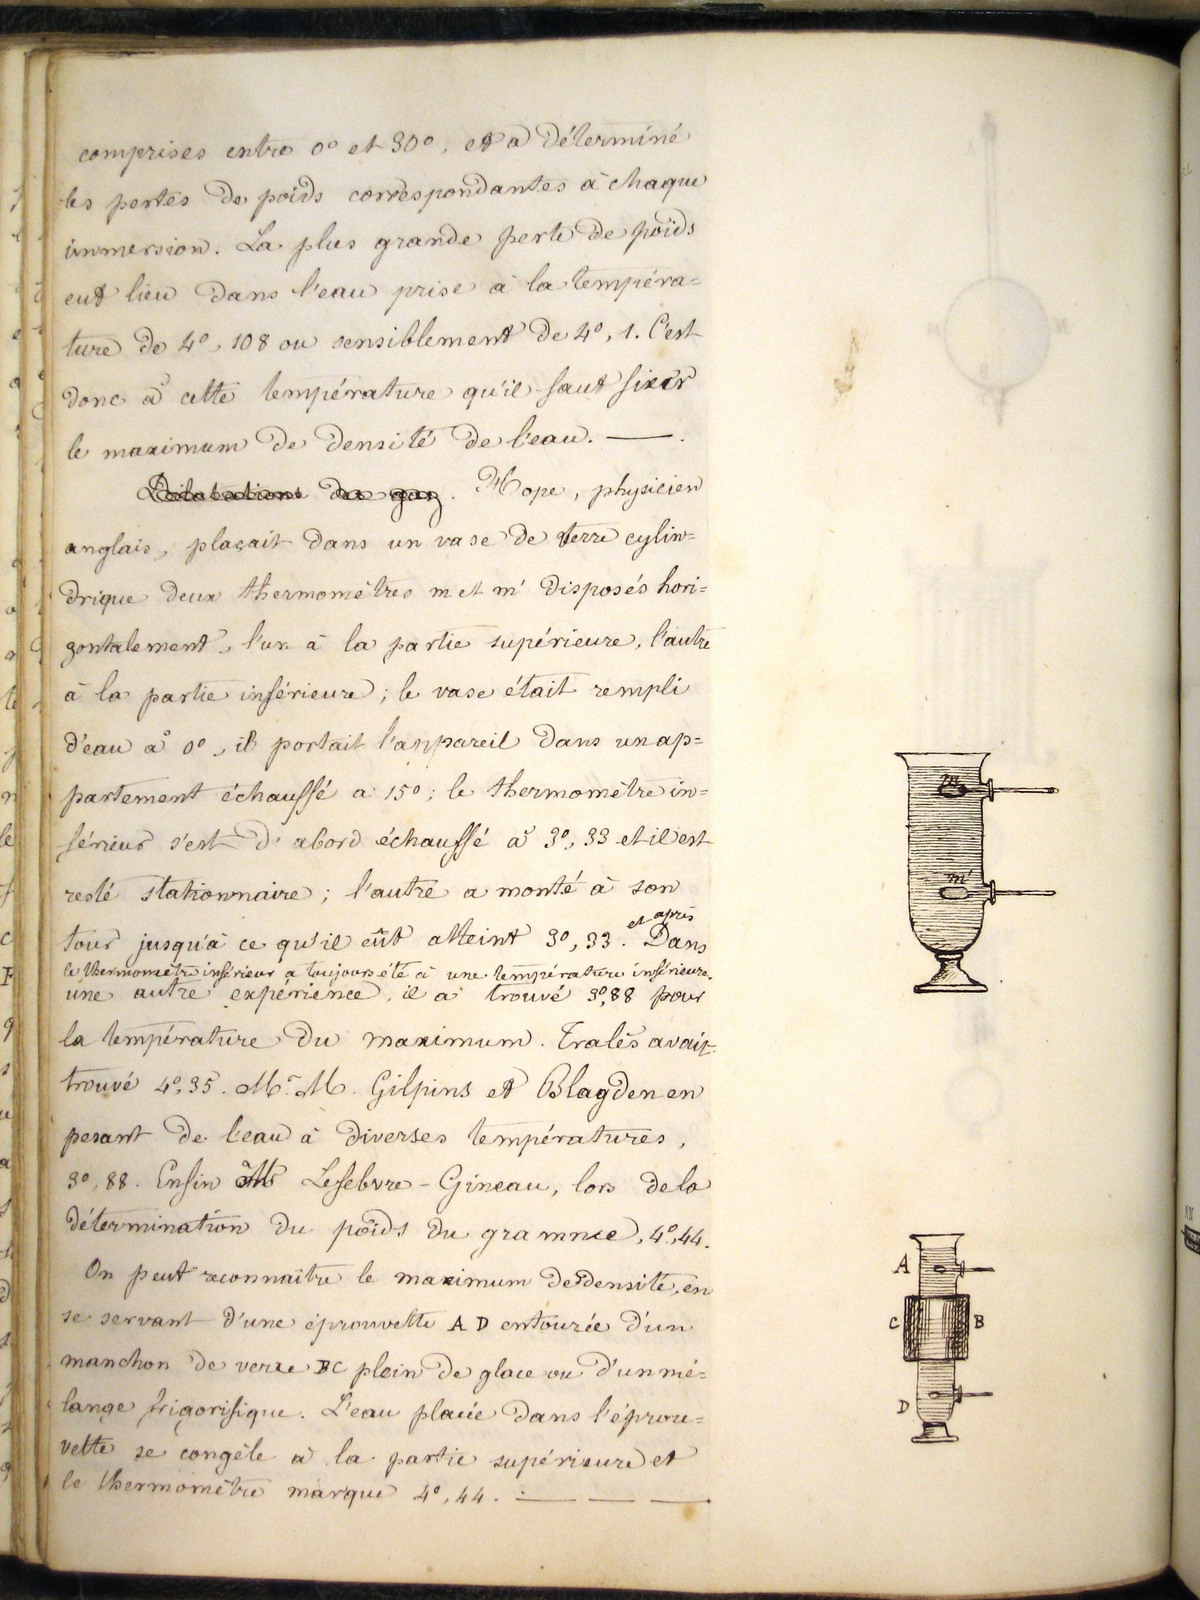 comprises entre 0° et 30°, et a déterminé
les pertes de poids correspondantes à chaque
immersion. La plus grande perte de poids
eut lieu dans l'eau prise à la tempéra=
ture de 4°, 108 ou sensiblement de 4°, 1. C'est
donc à cette température qu'il faut fixer
le maximum de densité de l'eau. —.
Dilatations des gaz. Hope, physicien
anglais, plaçait dans un vase de verre cylin=
drique deux thermomètres m et m' disposés hori=
zontalement, l'un à la partie supérieure, l'autre
à la partie inférieure ; le vase était rempli
d'eau à 0°, il portait l'appareil dans un ap=
partement échauffé a 15° ; le thermomètre in=
férieur s'est d'abord échauffé à 3°, 33 et il est
resté stationnaire ; l'autre a monté à son
tour jusqu'à ce qu'il eût atteint 3°, 33. et après Dans
le thermomètre inférieur a toujours été à une température inférieure.
une autre expérience, il a trouvé 3°,88 pour
la température du maximum. Tralès avait
trouvé 4°,35. Mr. M. Gilpins et Blagden en
pesant de l'eau à diverses températures,
3°, 88. Enfin Mr Lefebvre - Gineau, lors de la
détermination du poids du gramme, 4°,44.
On peut reconnaître le maximum de densité, en
se servant d'une éprouvette A D entourée d'un
manchon de verre BC plein de glace ou d'un mé=
lange frigorifique. L'eau placée dans l'éprou=
vette se congèle à la partie supérieure et
le thermomètre marque 4°, 44. — — —
m
m'
A
C B
D